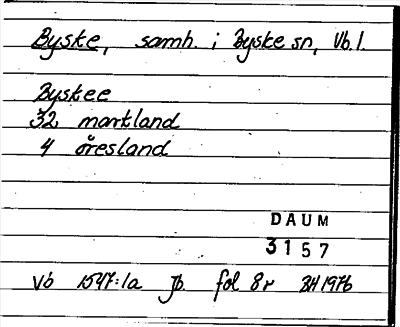 Byske, samh. i Byske sn, Vb. l.
Byskee
32 markland
4 öresland
DAUM
3157
Vb 1547:1a Jb. fol 8r BH 1976